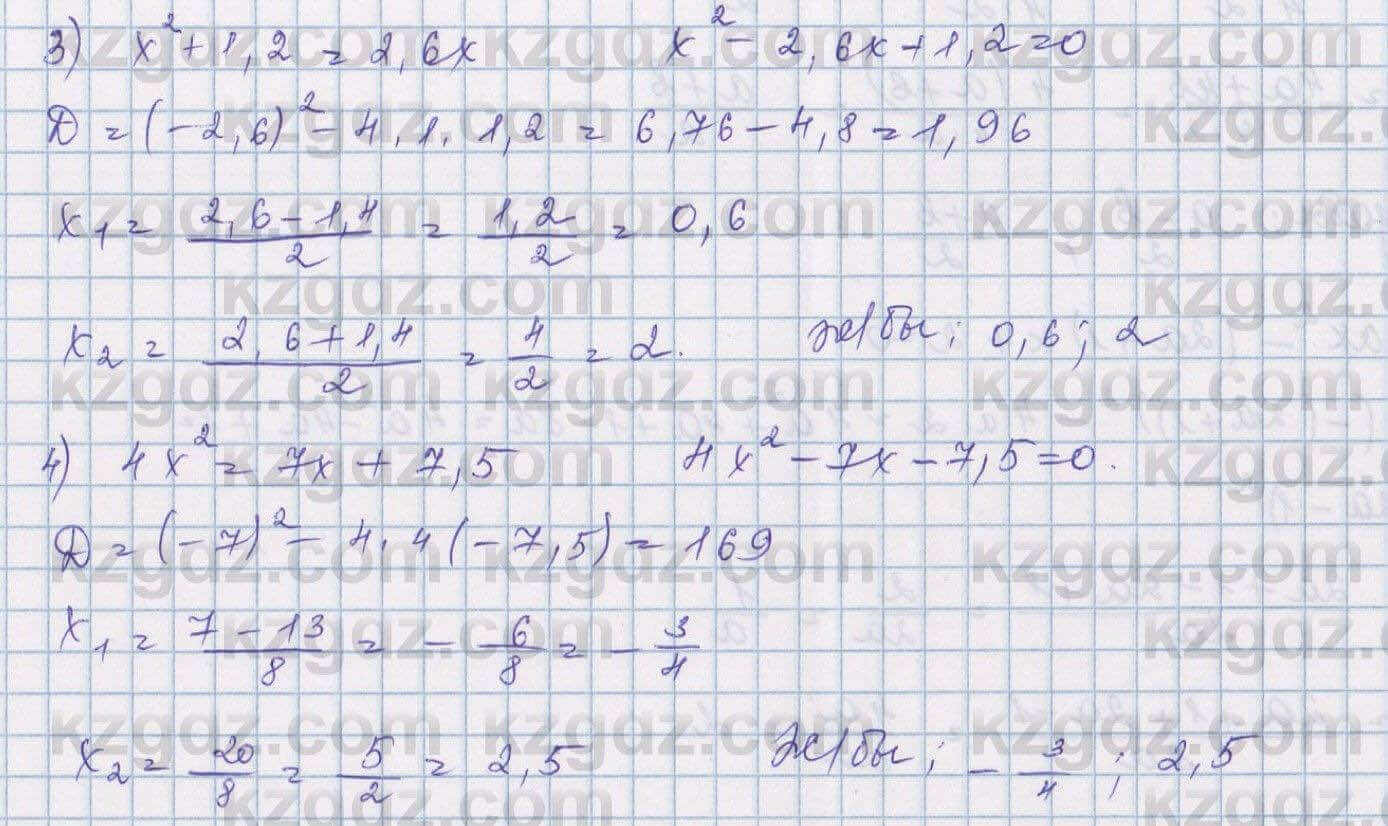 3) x² + 1,2 = 2,6x x² - 2,6x + 1,2 = 0
D = (-2,6)² - 4·1·1,2 = 6,76 - 4,8 = 1,96
x₁ = (2,6 - 1,4)/2 = 1,2/2 = 0,6
x₂ = (2,6 + 1,4)/2 = 4/2 = 2. Ж/бы; 0,6; 2
4) 4x² = 7x + 7,5 4x² - 7x - 7,5 = 0.
D = (-7)² - 4·4(-7,5) = 169
x₁ = (7 - 13)/8 = -6/8 = -3/4
x₂ = 20/8 = 5/2 = 2,5 Ж/бы; -3/4; 2,5
kzgdz.com